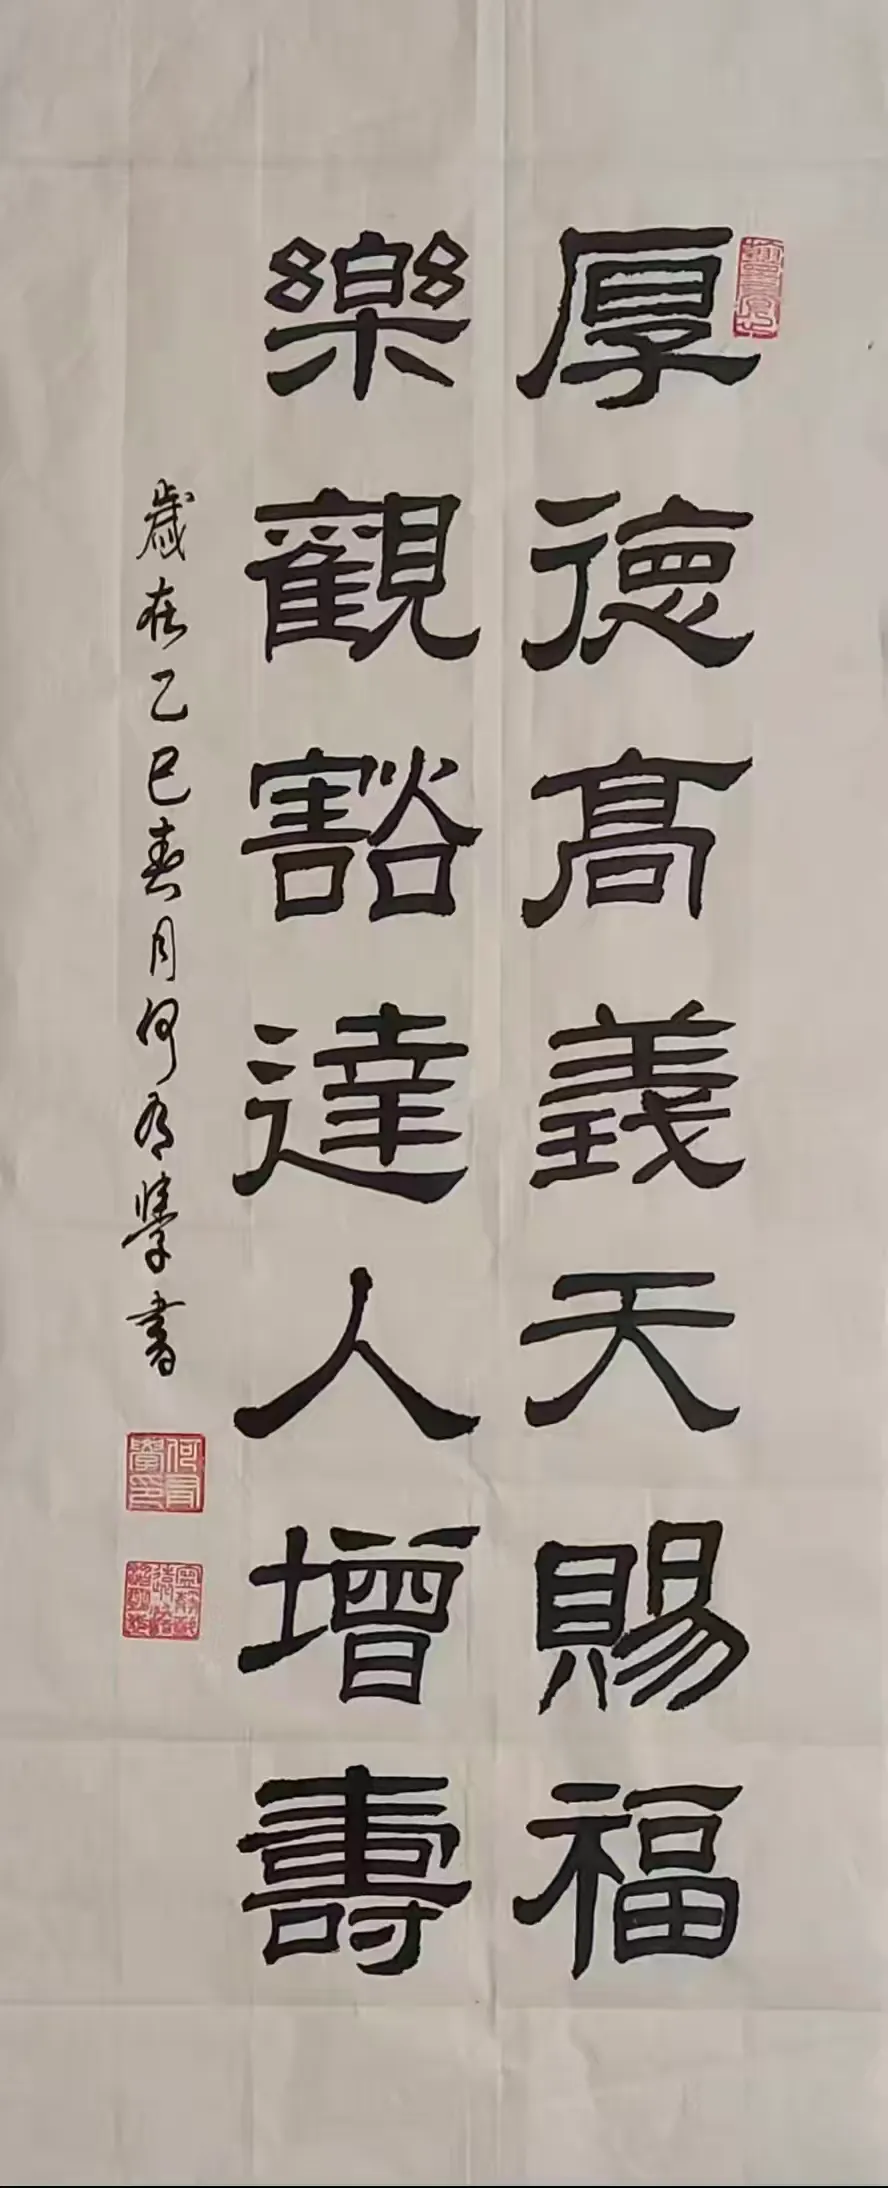 厚德高義天賜福
樂觀豁達人增壽
歲在乙巳春月何有學書
何有學印